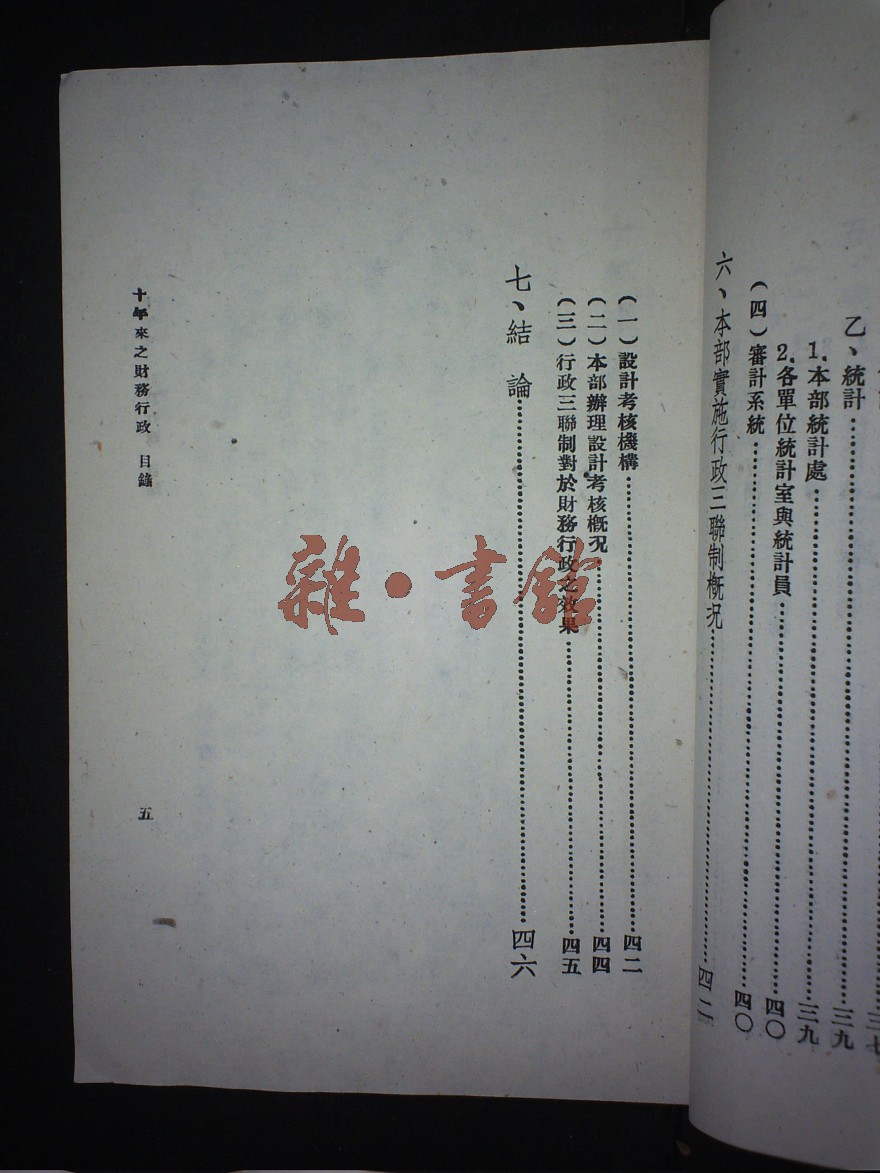 乙、統計……三九
1.本部統計處……三九
2.各單位統計室與統計員……四〇
(四)審計系統……四〇
六、本部實施行政三聯制槪況……四二
(一)設計考核機構……四二
(二)本部辦理設計考核槪況……四四
(三)行政三聯制對於財務行政之效果……四五
七、結論……四六
十年來之財務行政 目錄
五
雜·書館